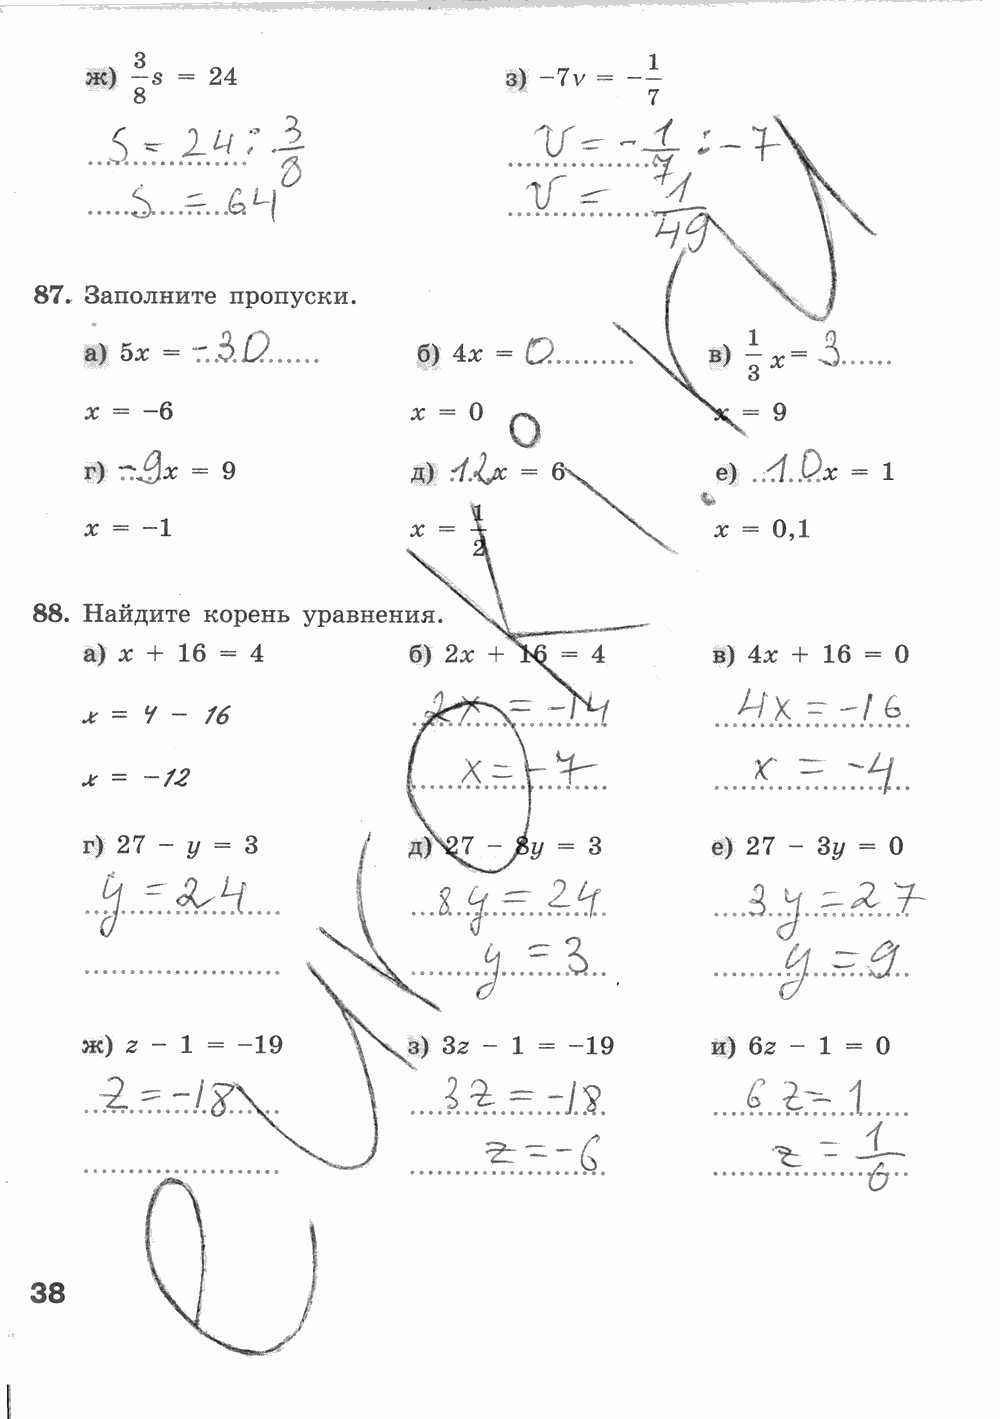 ж) 3/8 s = 24 з) −7v = −1/7
s = 24 : 3/8 v = −1/7 : −7
s = 64 v = 1/49
87. Заполните пропуски.
а) 5x = −30 б) 4x = 0 в) 1/3 x = 3
x = −6 x = 0 x = 9
г) −9x = 9 д) 12x = 6 е) 10x = 1
x = −1 x = 1/2 x = 0,1
88. Найдите корень уравнения.
а) x + 16 = 4 б) 2x + 16 = 4 в) 4x + 16 = 0
x = 4 − 16 2x = −14 4x = −16
x = −12 x = −7 x = −4
г) 27 − y = 3 д) 27 − 8y = 3 е) 27 − 3y = 0
y = 24 8y = 24 3y = 27
y = 3 y = 9
ж) z − 1 = −19 з) 3z − 1 = −19 и) 6z − 1 = 0
z = −18 3z = −18 6z = 1
z = −6 z = 1/6
38